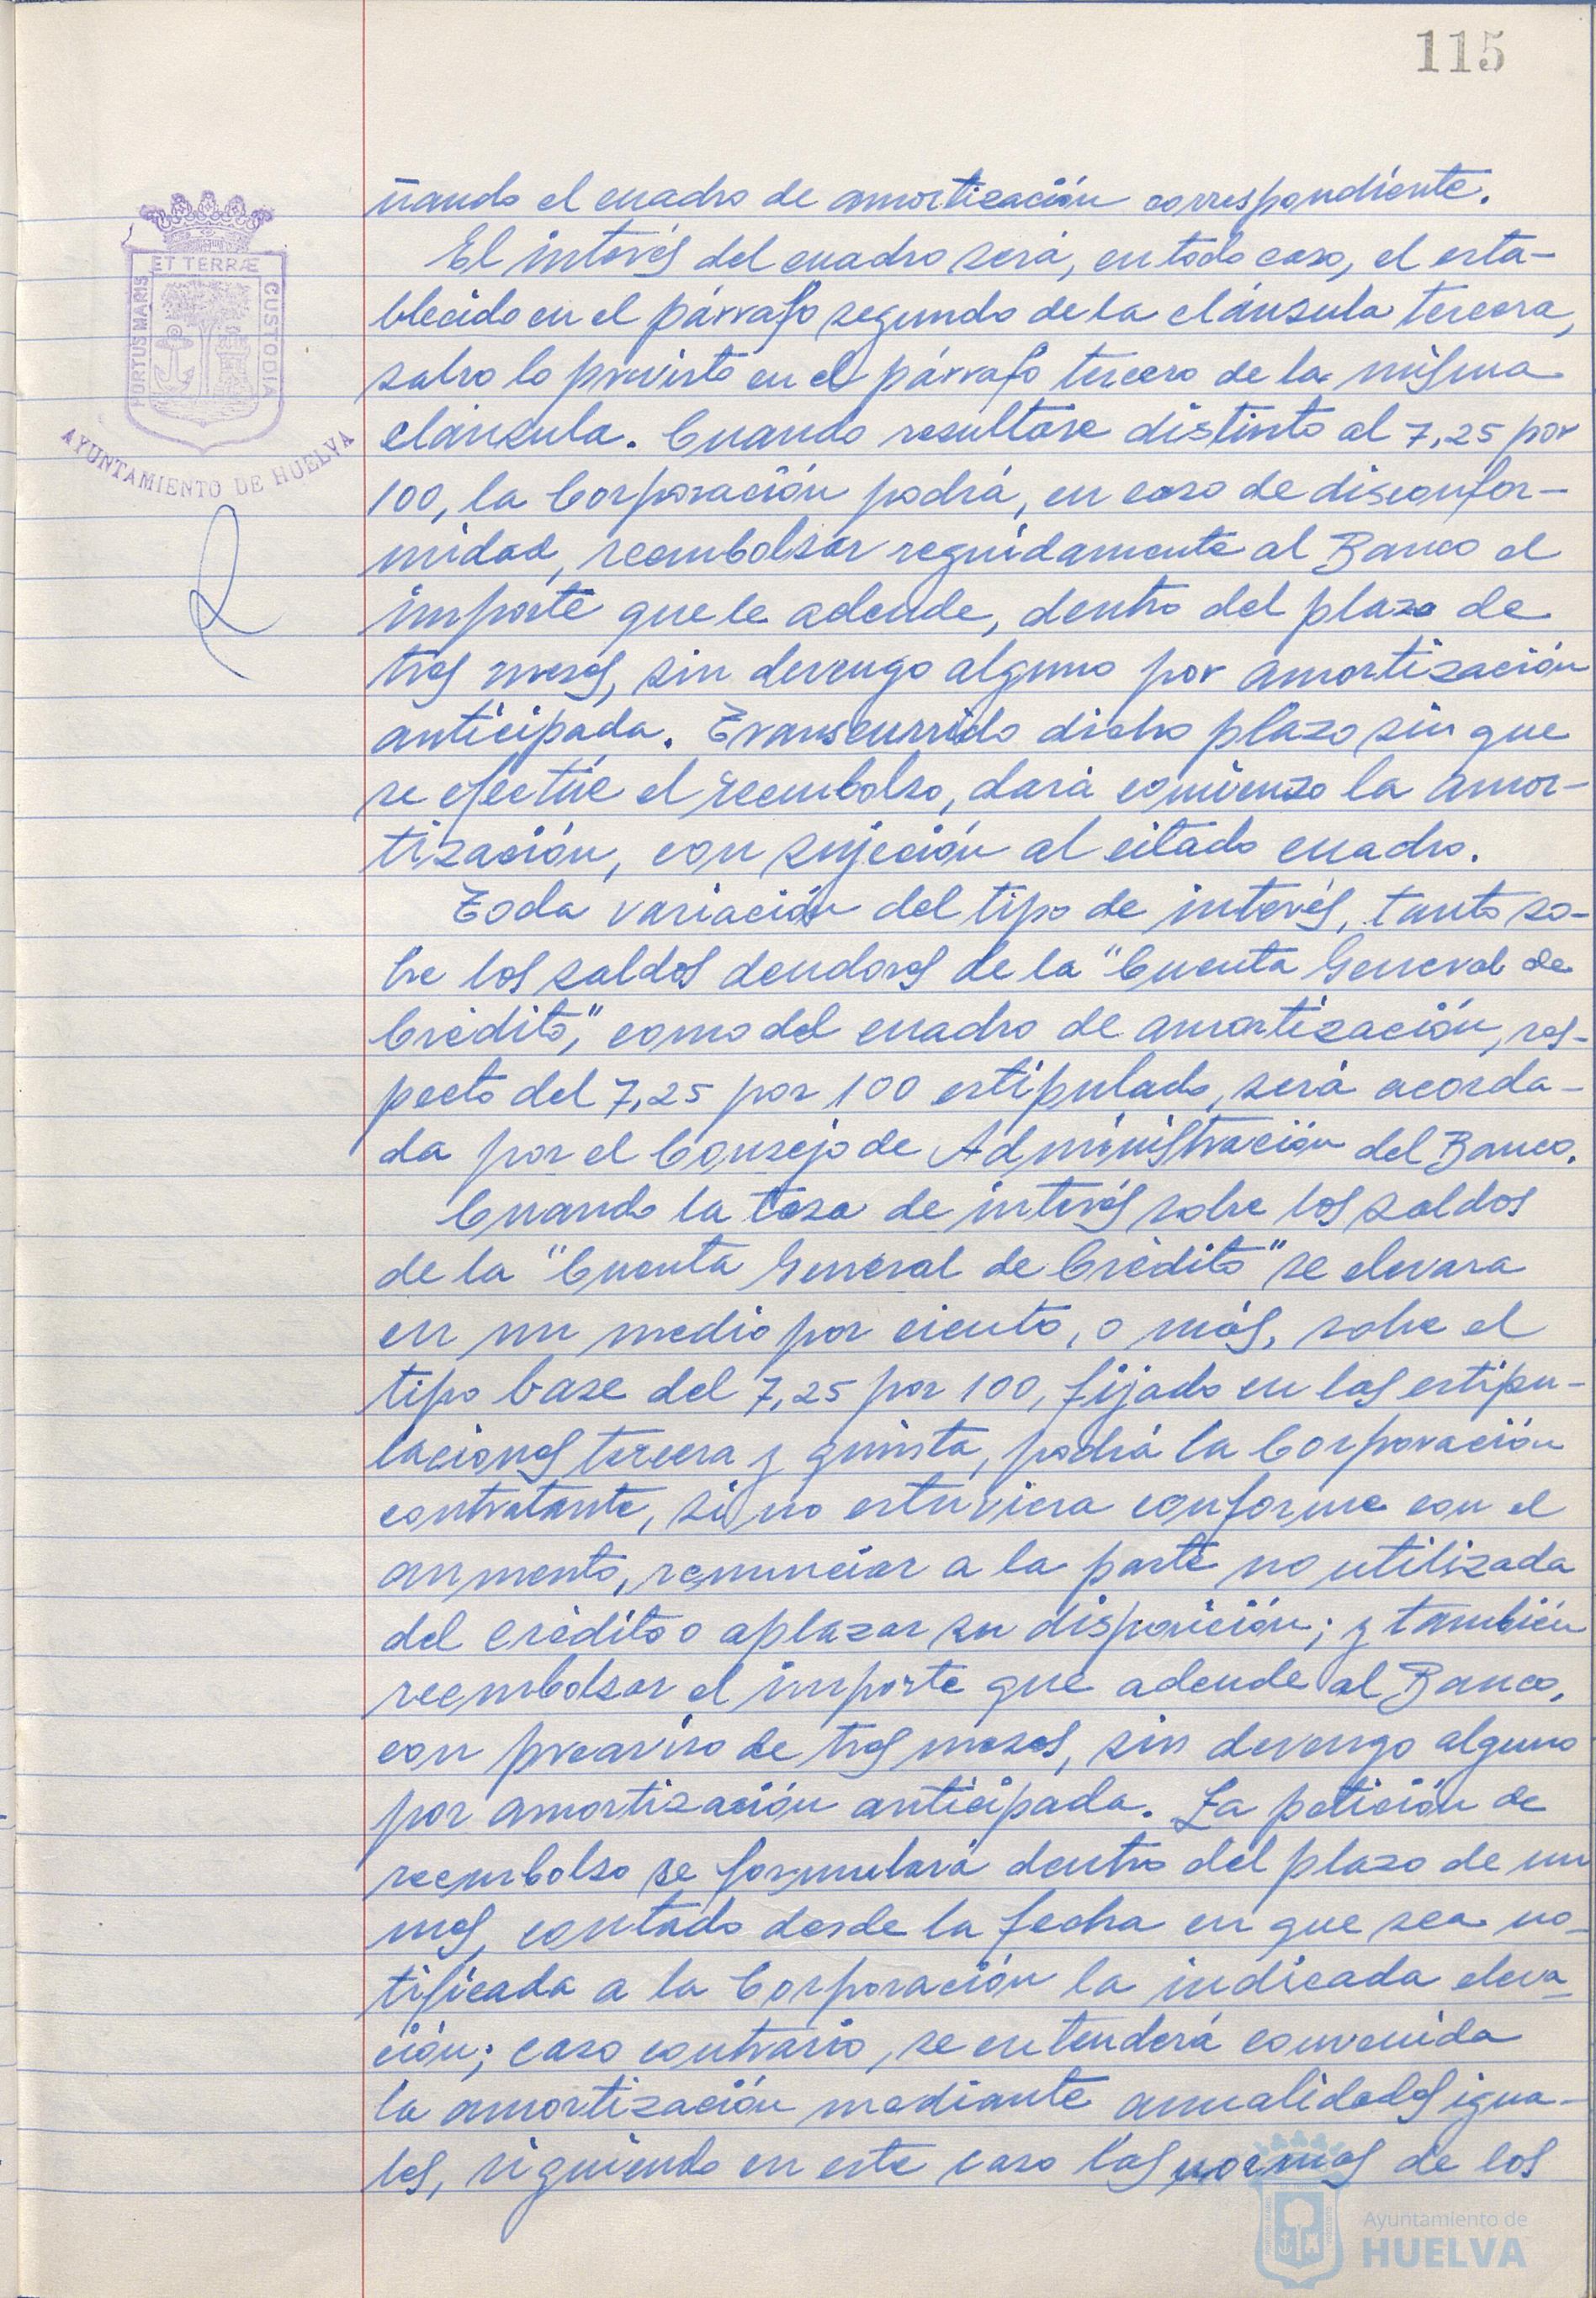 115
ET TERRÆ
PORTUS MARIS
CUSTODIA
AYUNTAMIENTO DE HUELVA
ñando el cuadro de amortización correspondiente.
El interés del cuadro será, en todo caso, el esta-
blecido en el párrafo segundo de la cláusula tercera,
salvo lo previsto en el párrafo tercero de la misma
cláusula. Cuando resultare distinto al 7,25 por
100, la Corporación podrá, en caso de disconfor-
midad, reembolsar seguidamente al Banco el
importe que le adeude, dentro del plazo de
tres meses, sin devengo alguno por amortización
anticipada. Transcurrido dicho plazo sin que
se efectúe el reembolso, dará comienzo la amor-
tización, con sujeción al citado cuadro.
Toda variación del tipo de interés, tanto so-
bre los saldos deudores de la "Cuenta General de
Crédito", como del cuadro de amortización, res-
pecto del 7,25 por 100 estipulado, será acorda-
da por el Consejo de Administración del Banco.
Cuando la tasa de interés sobre los saldos
de la "Cuenta General de Crédito" se elevara
en un medio por ciento, o más, sobre el
tipo base del 7,25 por 100, fijado en las estipu-
laciones tercera y quinta, podrá la Corporación
contratante, si no estuviera conforme con el
aumento, renunciar a la parte no utilizada
del crédito o aplazar su disposición; y también
reembolsar el importe que adeude al Banco,
con preaviso de tres meses, sin devengo alguno
por amortización anticipada. La petición de
reembolso se formulará dentro del plazo de un
mes, contado desde la fecha en que sea no-
tificada a la Corporación la indicada eleva-
ción; caso contrario, se entenderá convenida
la amortización mediante anualidades igua-
les, siguiendo en este caso las normas de los
Ayuntamiento de
HUELVA